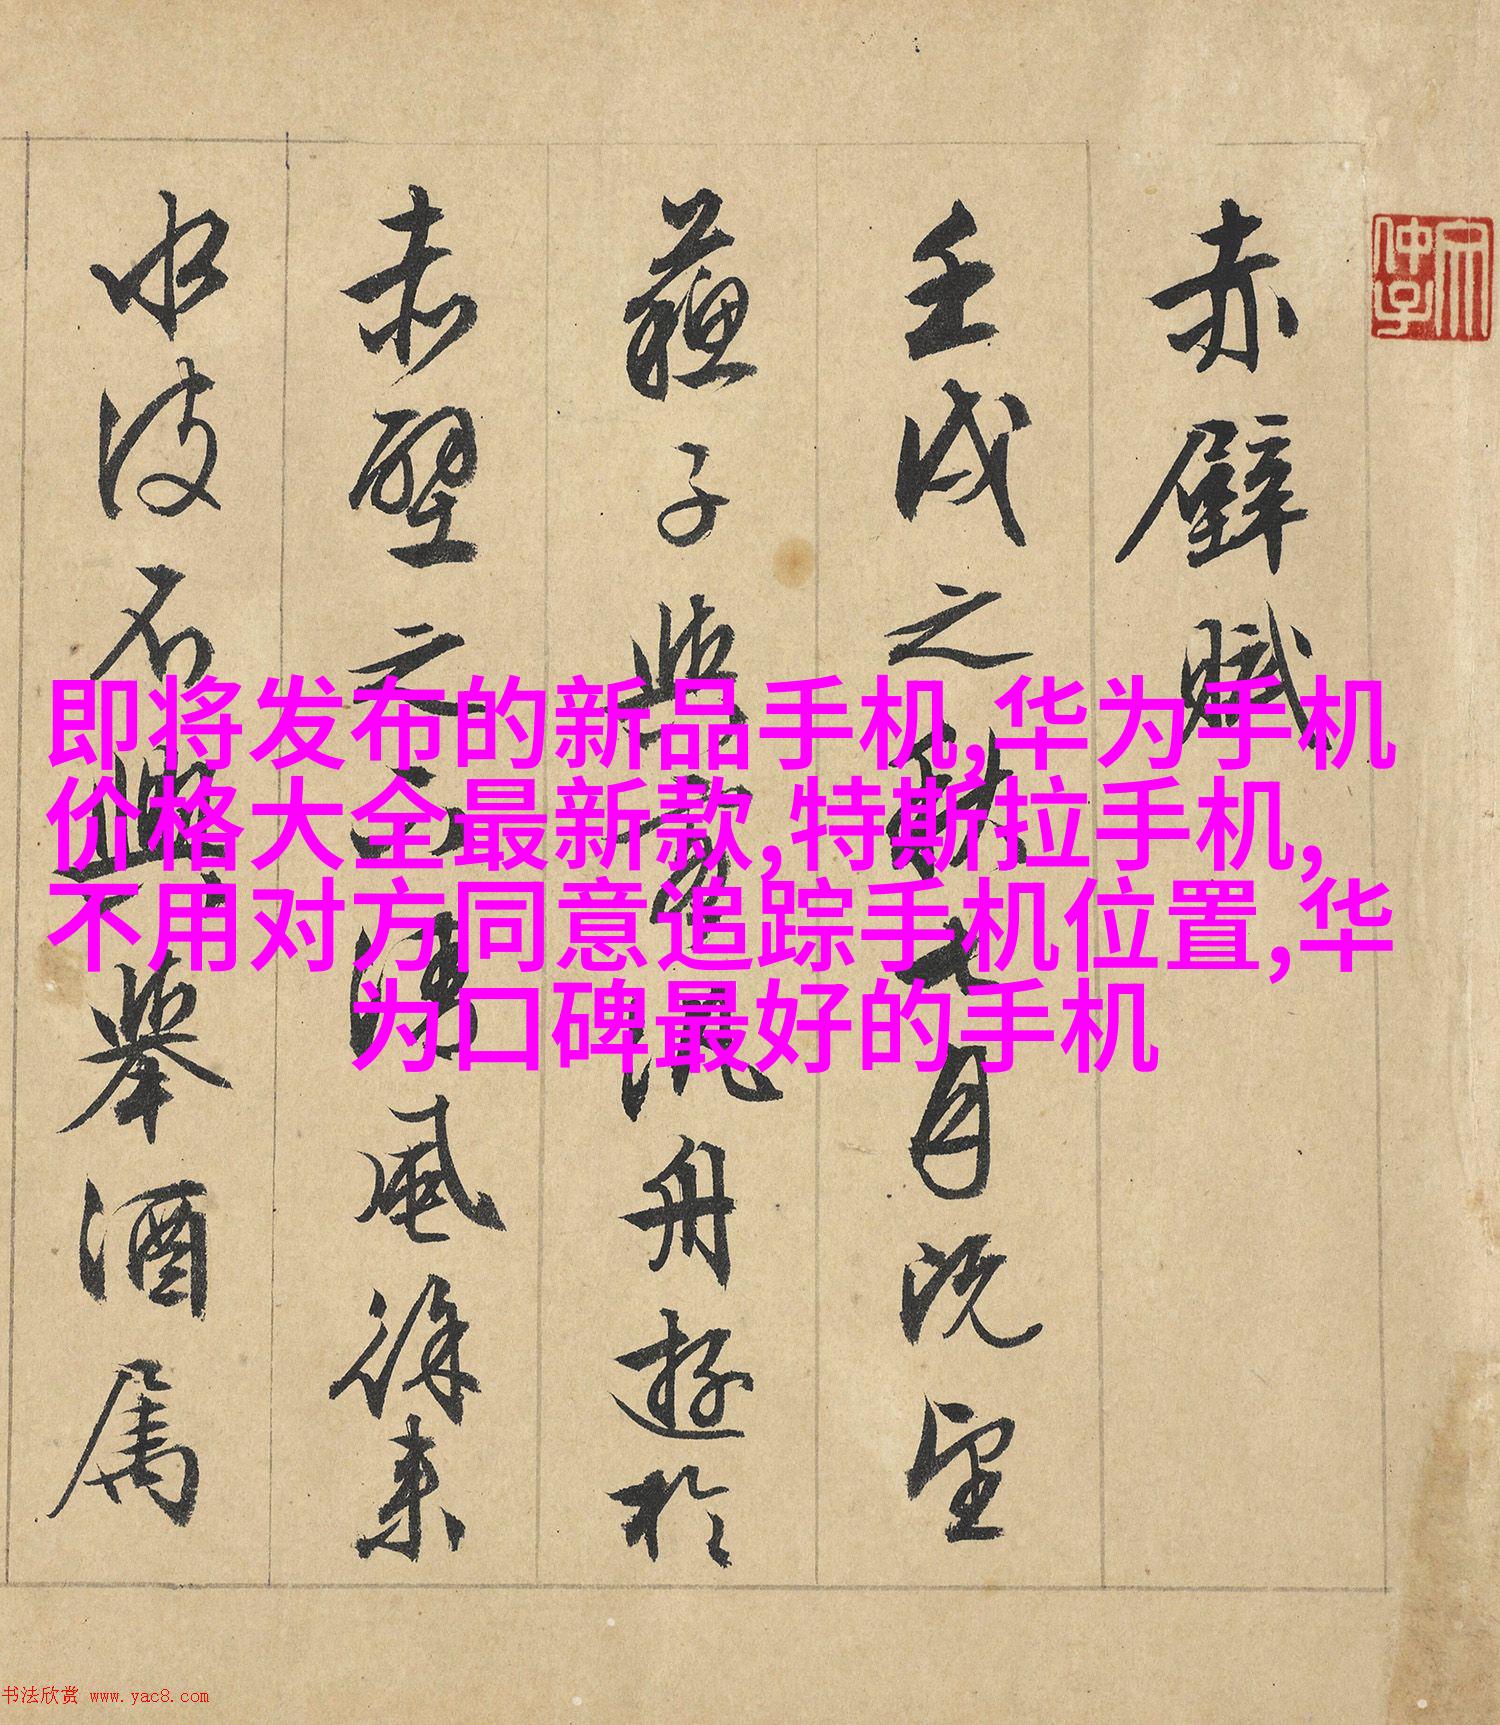 赤壁賦
壬戌之秋七月既望
蘇子與客泛舟遊於
赤壁之下清風徐来
水波不興舉酒屬
即将发布的新品手机,华为手机
价格大全最新款,特斯拉手机,
不用对方同意追踪手机位置,华
为口碑最好的手机
书法欣赏 www.yac8.com